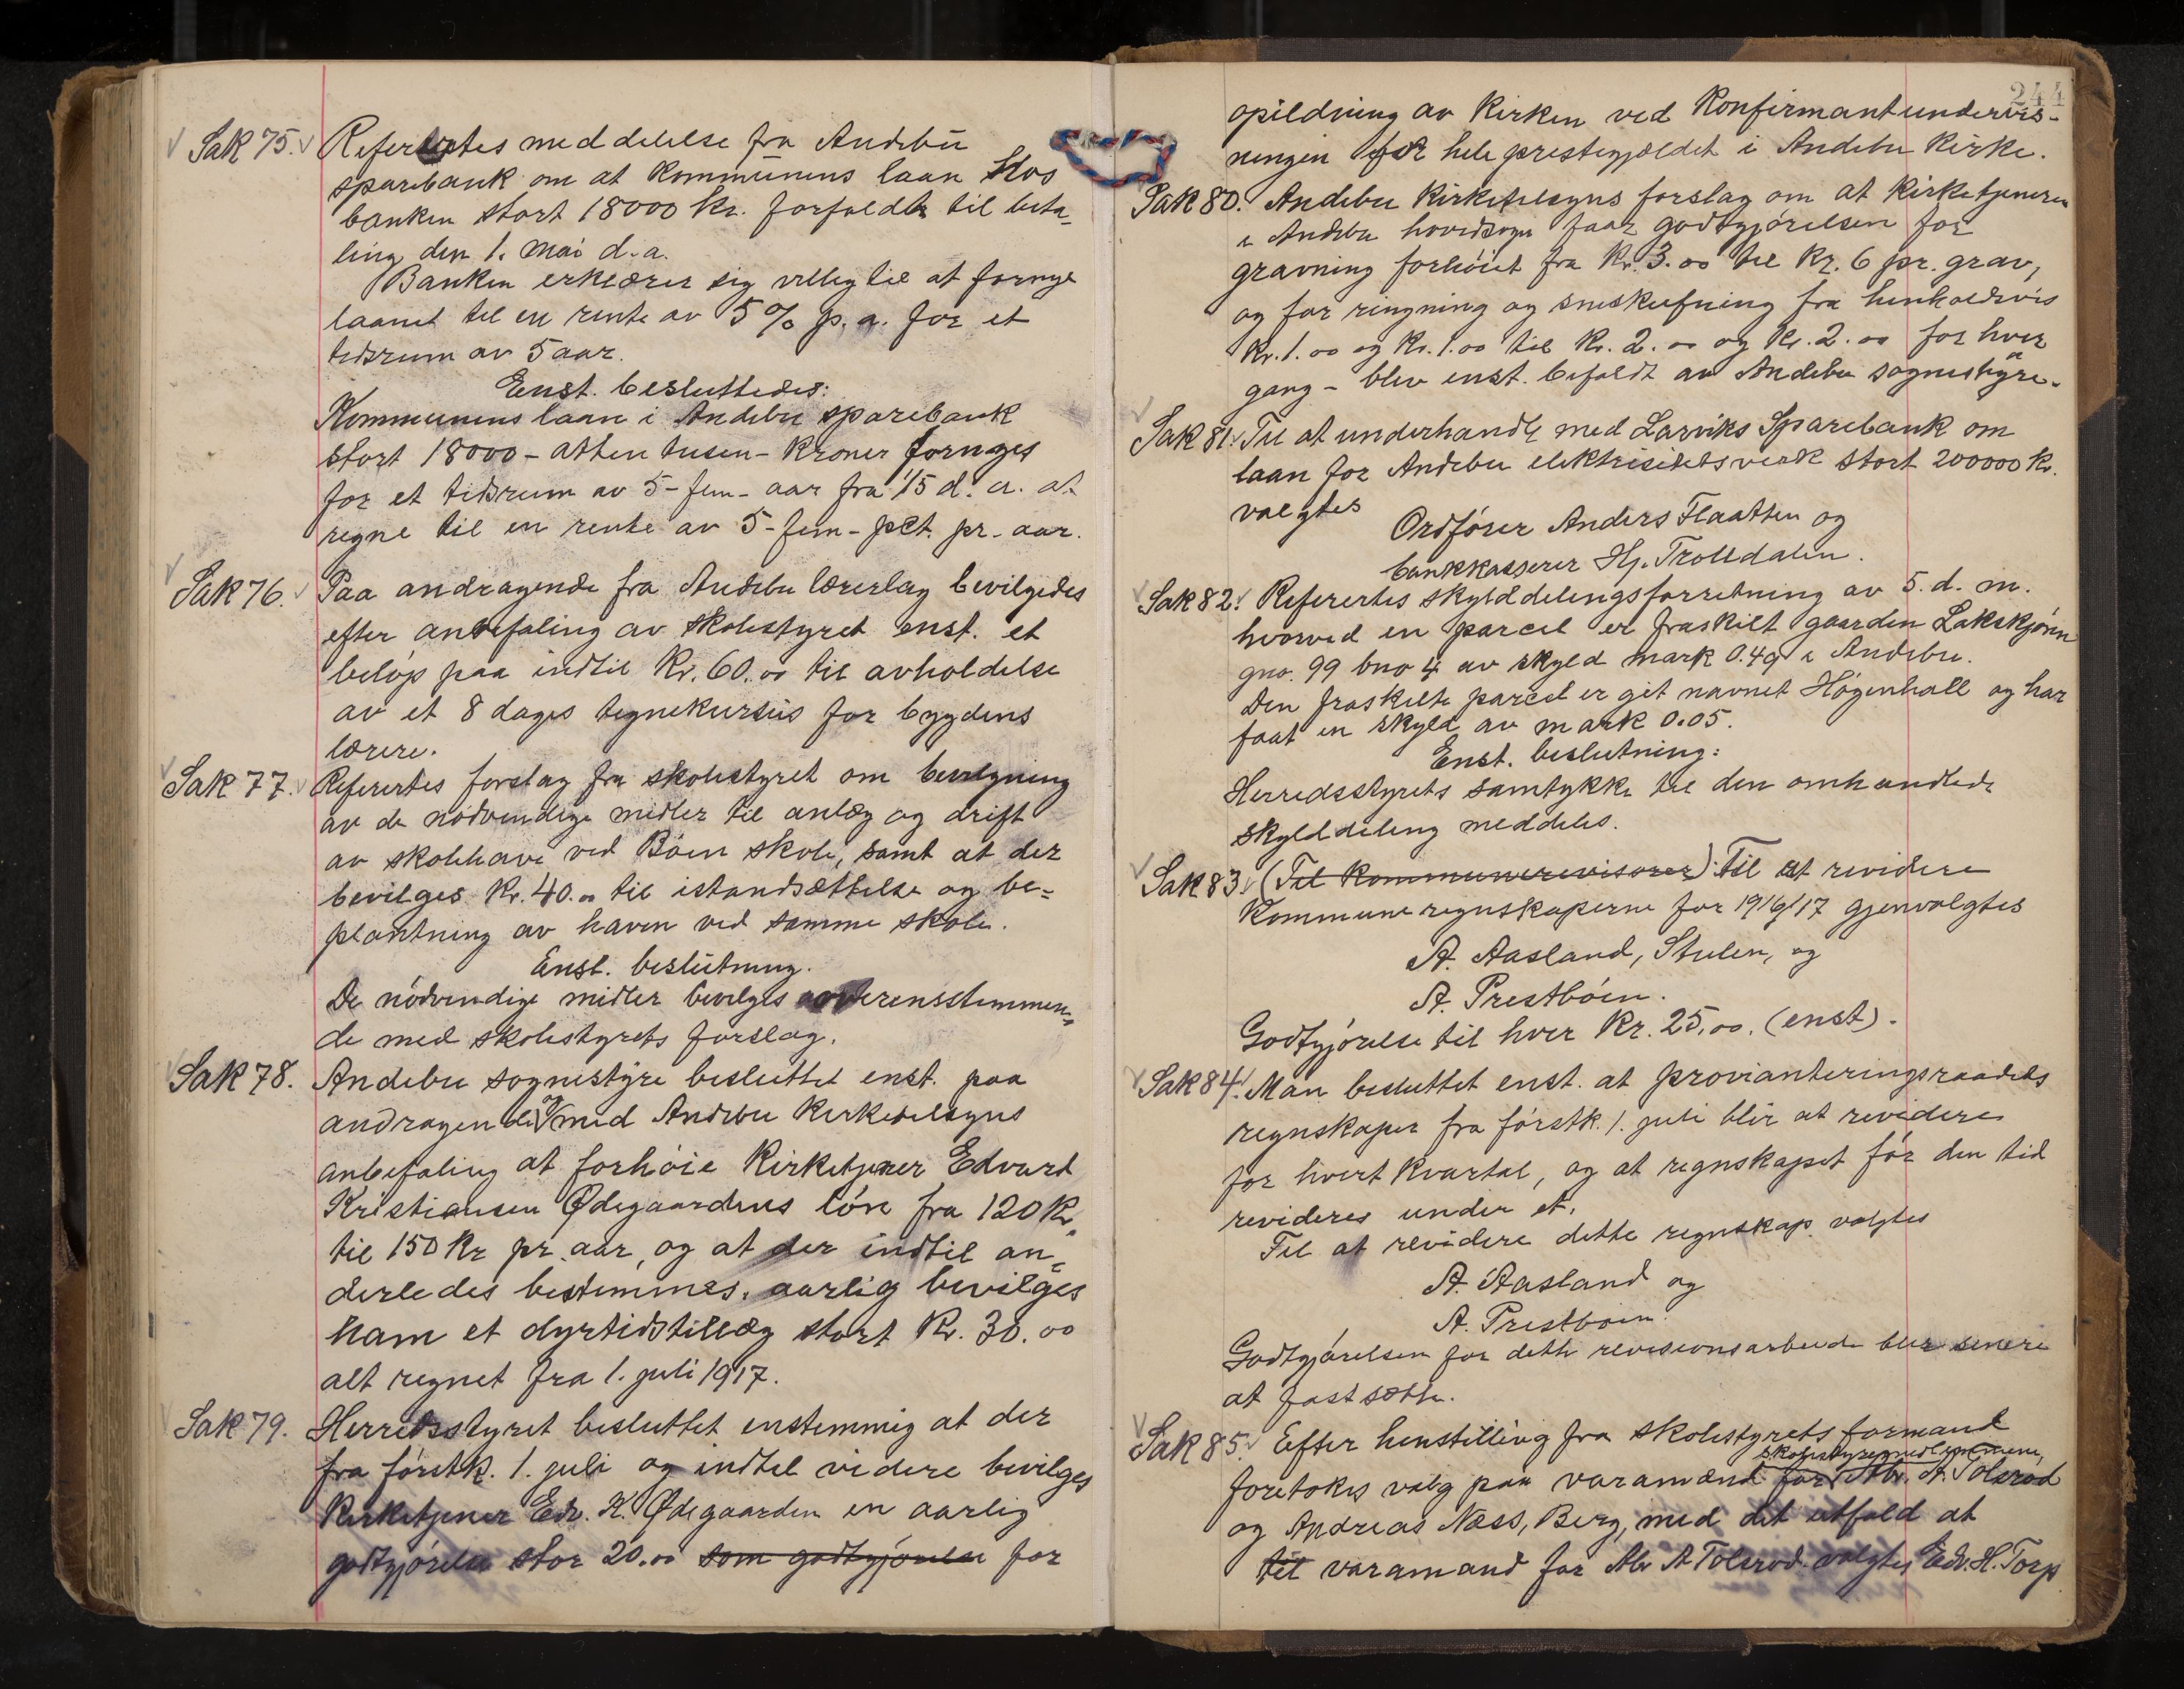 Sak 75. Refertes meddelelse fra Andebu
sparebank om at kommunens laan hos
banken stort 18000 kr. forfalder til beta-
ling den 1. mai d.a.
Banken erklærer sig villig til at fornye
laanet til en rente av 5% p.a. for et
tidsrum av 5 aar.
Enst. besluttedes:
Kommunens laan i Andebu sparebank
stort 18000 - atten tusen - kroner fornyes
for et tidsrum av 5 - fem - aar fra 1/5 d.a. at
regne til en rente av 5 - fem - pct. pr. aar.
Sak 76. Paa andragende fra Andebu lærerlag bevilgedes
efter anbefaling av skolestyret enst. et
beløp paa indtil Kr. 60.00 til avholdelse
av et 8 dages tegnekursus for bygdens
lærere.
Sak 77. Refertes forslag fra skolestyret om bevilgning
av de nødvendige midler til anlæg og drift
av skolehave ved Bøen skole, samt at der
bevilges Kr. 40.00 til istandsættelse og be-
plantning av haven ved samme skole.
Enst. beslutning.
De nødvendige midler bevilges overensstemmen-
de med skolestyrets forslag.
Sak 78. Andebu sognestyre besluttet enst. paa
andragende og med Andebu kirketilsyns
anbefaling at forhøie kirketjener Edvart
Kristiansen Ødegaardens løn fra 120 Kr.
til 150 Kr pr. aar, og at der indtil an-
derledes bestemmes, aarlig bevilges
ham et dyrtidstillæg stort Kr. 30.00
alt regnet fra 1. juli 1917.
Sak 79. Herredsstyret besluttet enstemmig at der
fra førstk. 1. juli og indtil videre bevilges
kirketjener Edv. K. Ødegaarden en aarlig
godtgjørelse stor 20.00 som godtgjørelse for
244
opildning av kirken ved konfirmantundervis-
ningen for hele prestegjældet i Andebu kirke.
Sak 80. Andebu kirketilsyns forslag om at kirketjeneren
i Andebu hovedsogn faar godtgjørelsen for
gravning forhøiet fra Kr. 3.00 til Kr. 6 pr. grav,
og for ringning og sneskufning fra henholdsvis
Kr. 1.00 og Kr. 1.00 til Kr. 2.00 og Kr. 2.00 for hver
gang - blev enst. bifaldt av Andebu sognestyre.
Sak 81. Til at underhandle med Larviks Sparebank om
laan for Andebu elektrisitetsverk stort 200000 Kr.
valgtes
Ordfører Anders Flaatten og
bankkasserer Hj. Trolldalen.
Sak 82. Refertes skylddelingsforretning av 5. d. m.
hvorved en parcel er fraskilt gaarden Lakskjønn
gno. 99 bno 4 av skyld mark 0.49 i Andebu.
Den fraskilte parcel er git navnet Høgenhall og har
faat en skyld av mark 0.05.
Enst. beslutning:
Herredsstyrets samtykke til den omhandlede
skylddeling meddeles.
Sak 83. (Til kommunerevisorer): Til at revidere
kommuneregnskaperne for 1916/17 gjenvalgtes
A. Aasland, Stulen, og
A. Prestbøen.
Godtgjørelse til hver Kr. 25.00. (enst).
Sak 84. Man besluttet enst. at provianteringsraadets
regnskaper fra førstk. 1. juli blir at revidere
for hvert kvartal, og at regnskapet før den tid
revideres under et.
Til at revidere dette regnskap valgtes
A. Aasland og
A. Prestbøen.
Godtgjørelsen for dette revisionsarbeide blir senere
at fastsætte.
Sak 85. Efter henstilling fra skolestyrets formand
skolestyremedlemmene,
foretokes valg paa varamænd for Abr. A. Tolsrød
og Andreas Næss, Berg, med det utfald at
til varamand for Abr A Tolsrød valgtes Edv. H. Torp